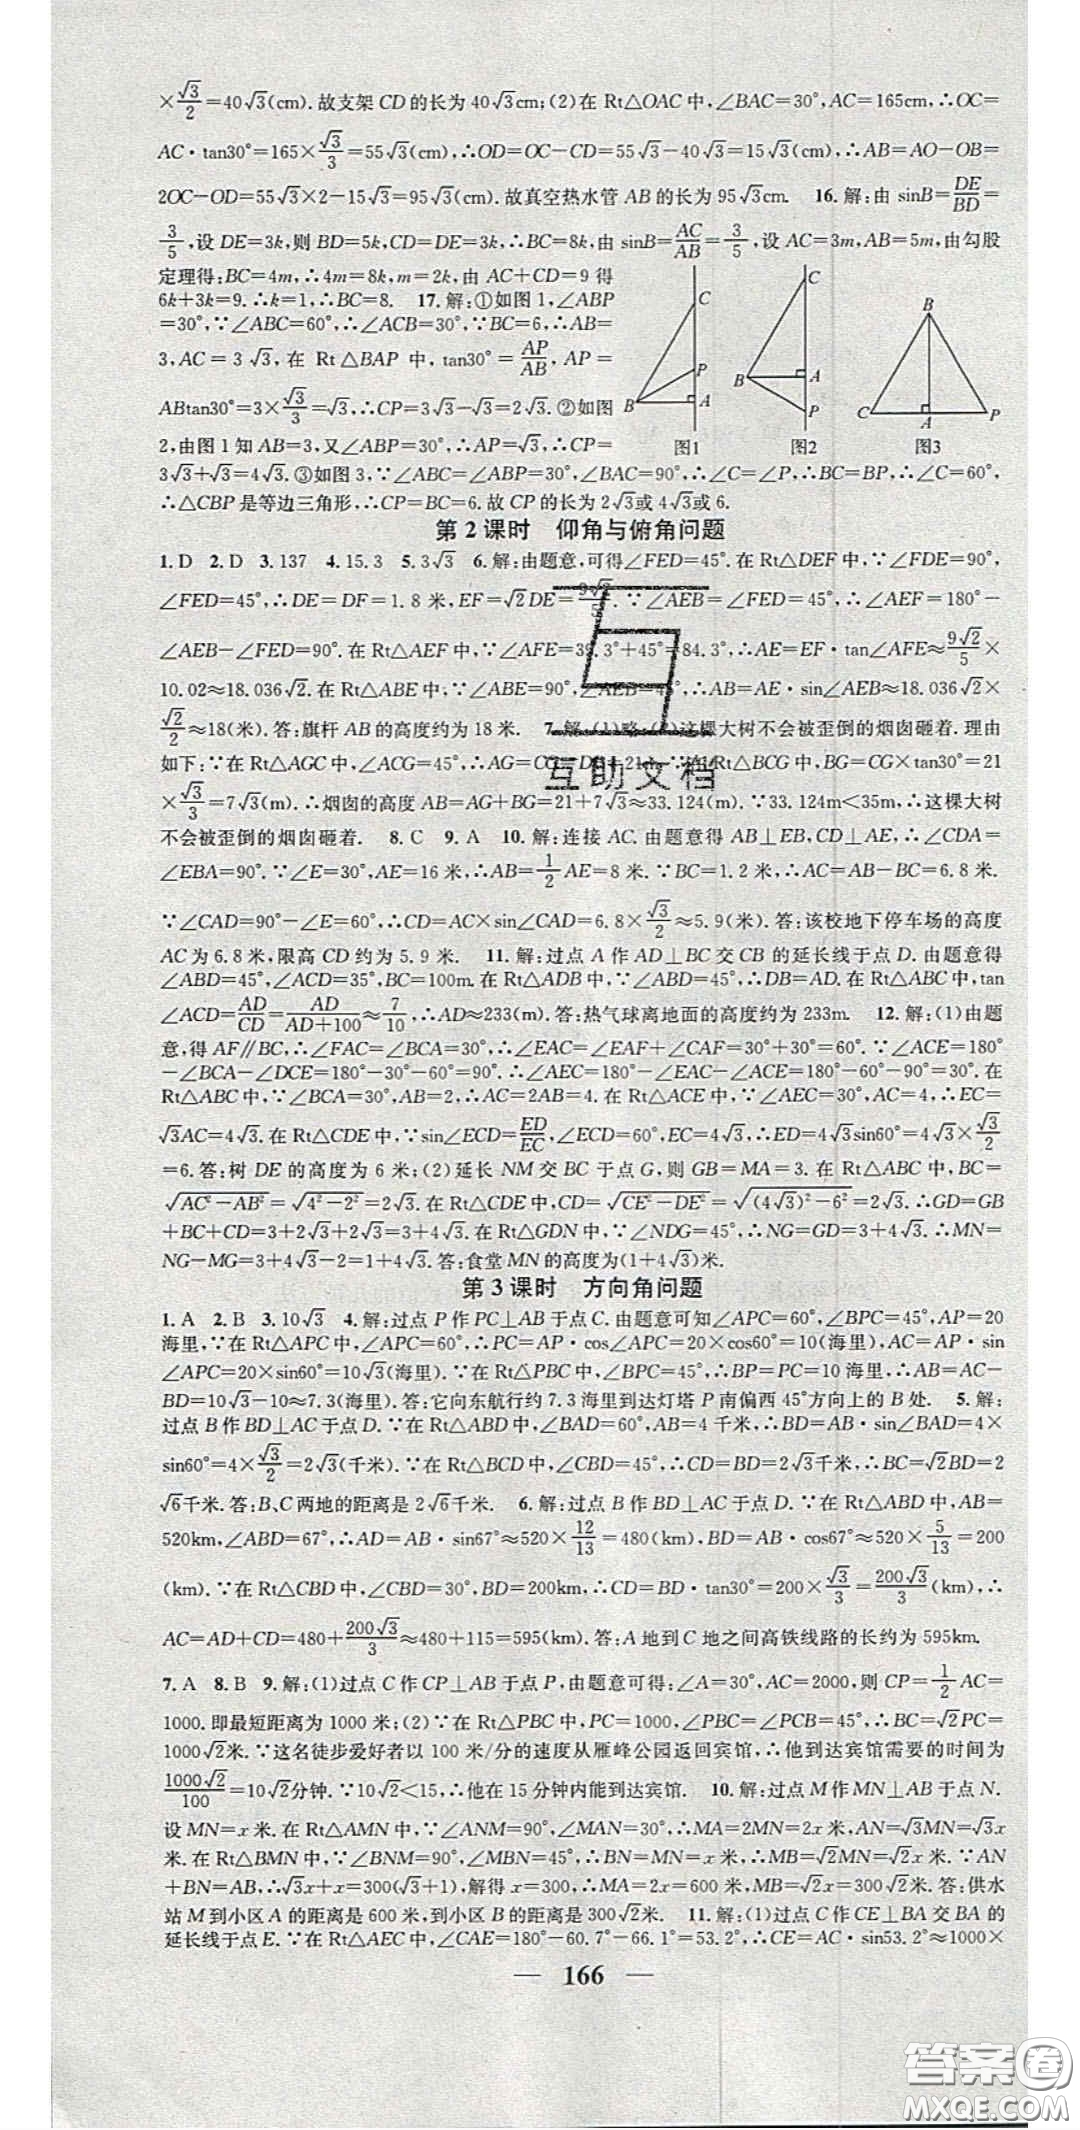 ×√3/2=40√3(cm).故支架CD的长为40√3cm;(2)在Rt△OAC中,∠BAC=30°,AC=165cm,∴OC=
AC·tan30°=165×√3/3=55√3(cm),∴OD=OC-CD=55√3-40√3=15√3(cm),∴AB=AO-OB=
2OC-OD=55√3×2-15√3=95√3(cm).故真空热水管AB的长为95√3cm. 16.解:由sinB=DE/BD=
3/5,设DE=3k,则BD=5k,CD=DE=3k,∴BC=8k,由sinB=AC/AB=3/5,设AC=3m,AB=5m,由勾股
定理得:BC=4m,∴4m=8k,m=2k,由AC+CD=9得
6k+3k=9.∴k=1,∴BC=8. 17.解:①如图1,∠ABP
=30°,∵∠ABC=60°,∴∠ACB=30°,∵BC=6,∴AB=
3,AC=3√3,在Rt△BAP中,tan30°=AP/AB,AP=
ABtan30°=3×√3/3=√3,∴CP=3√3-√3=2√3.②如图
2,由图1知AB=3,又∠ABP=30°,∴AP=√3,∴CP=
C
P
B
A
图1
C
B
A
P
图2
B
C
A
P
图3
3√3+√3=4√3.③如图3,∵∠ABC=∠ABP=30°,∠BAC=90°,∴∠C=∠P,∴BC=BP,∴∠C=60°,
∴△CBP是等边三角形,∴CP=BC=6.故CP的长为2√3或4√3或6.
第2课时 仰角与俯角问题
1.D 2.D 3.137 4.15.3 5.3√3 6.解:由题意,可得∠FED=45°.在Rt△DEF中,∵∠FDE=90°,
∠FED=45°,∴DE=DF=1.8米,EF=√2DE=9√2/5.∵∠AEB=∠FED=45°,∴∠AEF=180°-
∠AEB-∠FED=90°.在Rt△AEF中,∵∠AFE=39.3°+45°=84.3°,∴AE=EF·tan∠AFE≈9√2/5×
10.02≈18.036√2.在Rt△ABE中,∵∠ABE=90°,∠AEB=45°,∴AB=AE·sin∠AEB≈18.036√2×
√2/2≈18(米).答:旗杆AB的高度约为18米. 7.解:(1)略;(2)这棵大树不会被歪倒的烟囱砸着.理由
如下:∵在Rt△AGC中,∠ACG=45°,∴AG=CG=DB=21m.∵在Rt△BCG中,BG=CG×tan30°=21
互助文档
×√3/3=7√3(m).∴烟囱的高度AB=AG+BG=21+7√3≈33.124(m).∵33.124m<35m,∴这棵大树
不会被歪倒的烟囱砸着. 8.C 9.A 10.解:连接AC.由题意得AB⊥EB,CD⊥AE,∴∠CDA=
∠EBA=90°.∵∠E=30°,AE=16米,∴AB=1/2AE=8米.∵BC=1.2米,∴AC=AB-BC=6.8米.
∵∠CAD=90°-∠E=60°,∴CD=AC×sin∠CAD=6.8×√3/2≈5.9(米).答:该校地下停车场的高度
AC为6.8米,限高CD约为5.9米. 11.解:过点A作AD⊥BC交CB的延长线于点D.由题意得
∠ABD=45°,∠ACD=35°,BC=100m.在Rt△ADB中,∵∠ABD=45°,∴DB=AD.在Rt△ABC中,tan
∠ACD=AD/CD=AD/AD+100≈7/10,∴AD≈233(m).答:热气球离地面的高度约为233m. 12.解:(1)由题
意,得AF∥BC,∴∠FAC=∠BCA=30°,∴∠EAC=∠EAF+∠CAF=30°+30°=60°.∵∠ACE=180°
-∠BCA-∠DCE=180°-30°-60°=90°.∴∠AEC=180°-∠EAC-∠ACE=180°-60°-90°=30°.在
Rt△ABC中,∵∠BCA=30°,AB=2,∴AC=2AB=4.在Rt△ACE中,∵∠AEC=30°,AC=4,∴EC=
√3AC=4√3.在Rt△CDE中,∵sin∠ECD=ED/EC,∠ECD=60°,EC=4√3,∴ED=4√3sin60°=4√3×√3/2
=6.答:树DE的高度为6米;(2)延长NM交BC于点G,则GB=MA=3.在Rt△ABC中,BC=
√(AC²-AB²)=√(4²-2²)=2√3.在Rt△CDE中,CD=√(CE²-DE²)=√((4√3)²-6²)=2√3.∴GD=GB
+BC+CD=3+2√3+2√3=3+4√3.在Rt△GDN中,∵∠NDG=45°,∴NG=GD=3+4√3.∴MN=
NG-MG=3+4√3-2=1+4√3.答:食堂MN的高度为(1+4√3)米.
第3课时 方向角问题
1.A 2.B 3.10√3 4.解:过点P作PC⊥AB于点C.由题意可知∠APC=60°,∠BPC=45°,AP=20
海里,∵在Rt△APC中,∠APC=60°,∴PC=AP·cos∠APC=20×cos60°=10(海里),AC=AP·sin
∠APC=20×sin60°=10√3(海里).∵在Rt△PBC中,∠BPC=45°,∴BP=PC=10海里,∴AB=AC-
BD=10√3-10≈7.3(海里).答:它向东航行约7.3海里到达灯塔P南偏西45°方向上的B处. 5.解:
过点B作BD⊥AC于点D.∵在Rt△ABD中,∠BAD=60°,AB=4千米,∴BD=AB·sin∠BAD=4×
sin60°=4×√3/2=2√3(千米).∵在Rt△BCD中,∠CBD=45°,BD=2√3千米,∴BC=√2BD=2
√6千米.答:B、C两地的距离是2√6千米. 6.解:过点B作BD⊥AC于点D.∵在Rt△ABD中,AB=
520km,∠ABD=67°,∴AD=AB·sin67°≈520×12/13=480(km),BD=AB·cos67°≈520×5/13=200
(km).∵在Rt△CBD中,∠CBD=30°,BD=200km,∴CD=BD·tan30°=200×√3/3=200√3/3(km),∴
AC=AD+CD=480+200√3/3≈480+115=595(km).答:A地到C地之间高铁线路的长约为595km.
7.A 8.B 9.解:(1)过点C作CP⊥AB于点P,由题意可得:∠A=30°,AC=2000,则CP=1/2AC=
1000.即最短距离为1000米;(2)∵在Rt△PBC中,PC=1000,∠PBC=∠PCB=45°,∴BC=√2PC=
1000√2米.∵这名徒步爱好者以100米/分的速度从雁峰公园返回宾馆,∴他到达宾馆需要的时间为
1000√2/100=10√2分钟.∵10√2<15,∴他在15分钟内能到达宾馆. 10.解:过点M作MN⊥AB于点N.
设MN=x米.在Rt△AMN中,∵∠ANM=90°,∠MAN=30°,∴MA=2MN=2x米,AN=√3MN=√3x
米.在Rt△BMN中,∵∠BNM=90°,∠MBN=45°,∴BN=MN=x米,∴MB=√2MN=√2x米.∵AN
+BN=AB,∴√3x+x=300(√3+1),解得x=300,∴MA=2x=600米,MB=√2x=300√2米.答:供水
站M到小区A的距离是600米,到小区B的距离是300√2米. 11.解:(1)过点C作CE⊥BA交BA的
延长线于点E.∵在Rt△AEC中,∠CAE=180°-60.7°-66.1°=53.2°,∴CE=AC·sin53.2°≈1000×
— 166 —
答案圈
MXQE.COM